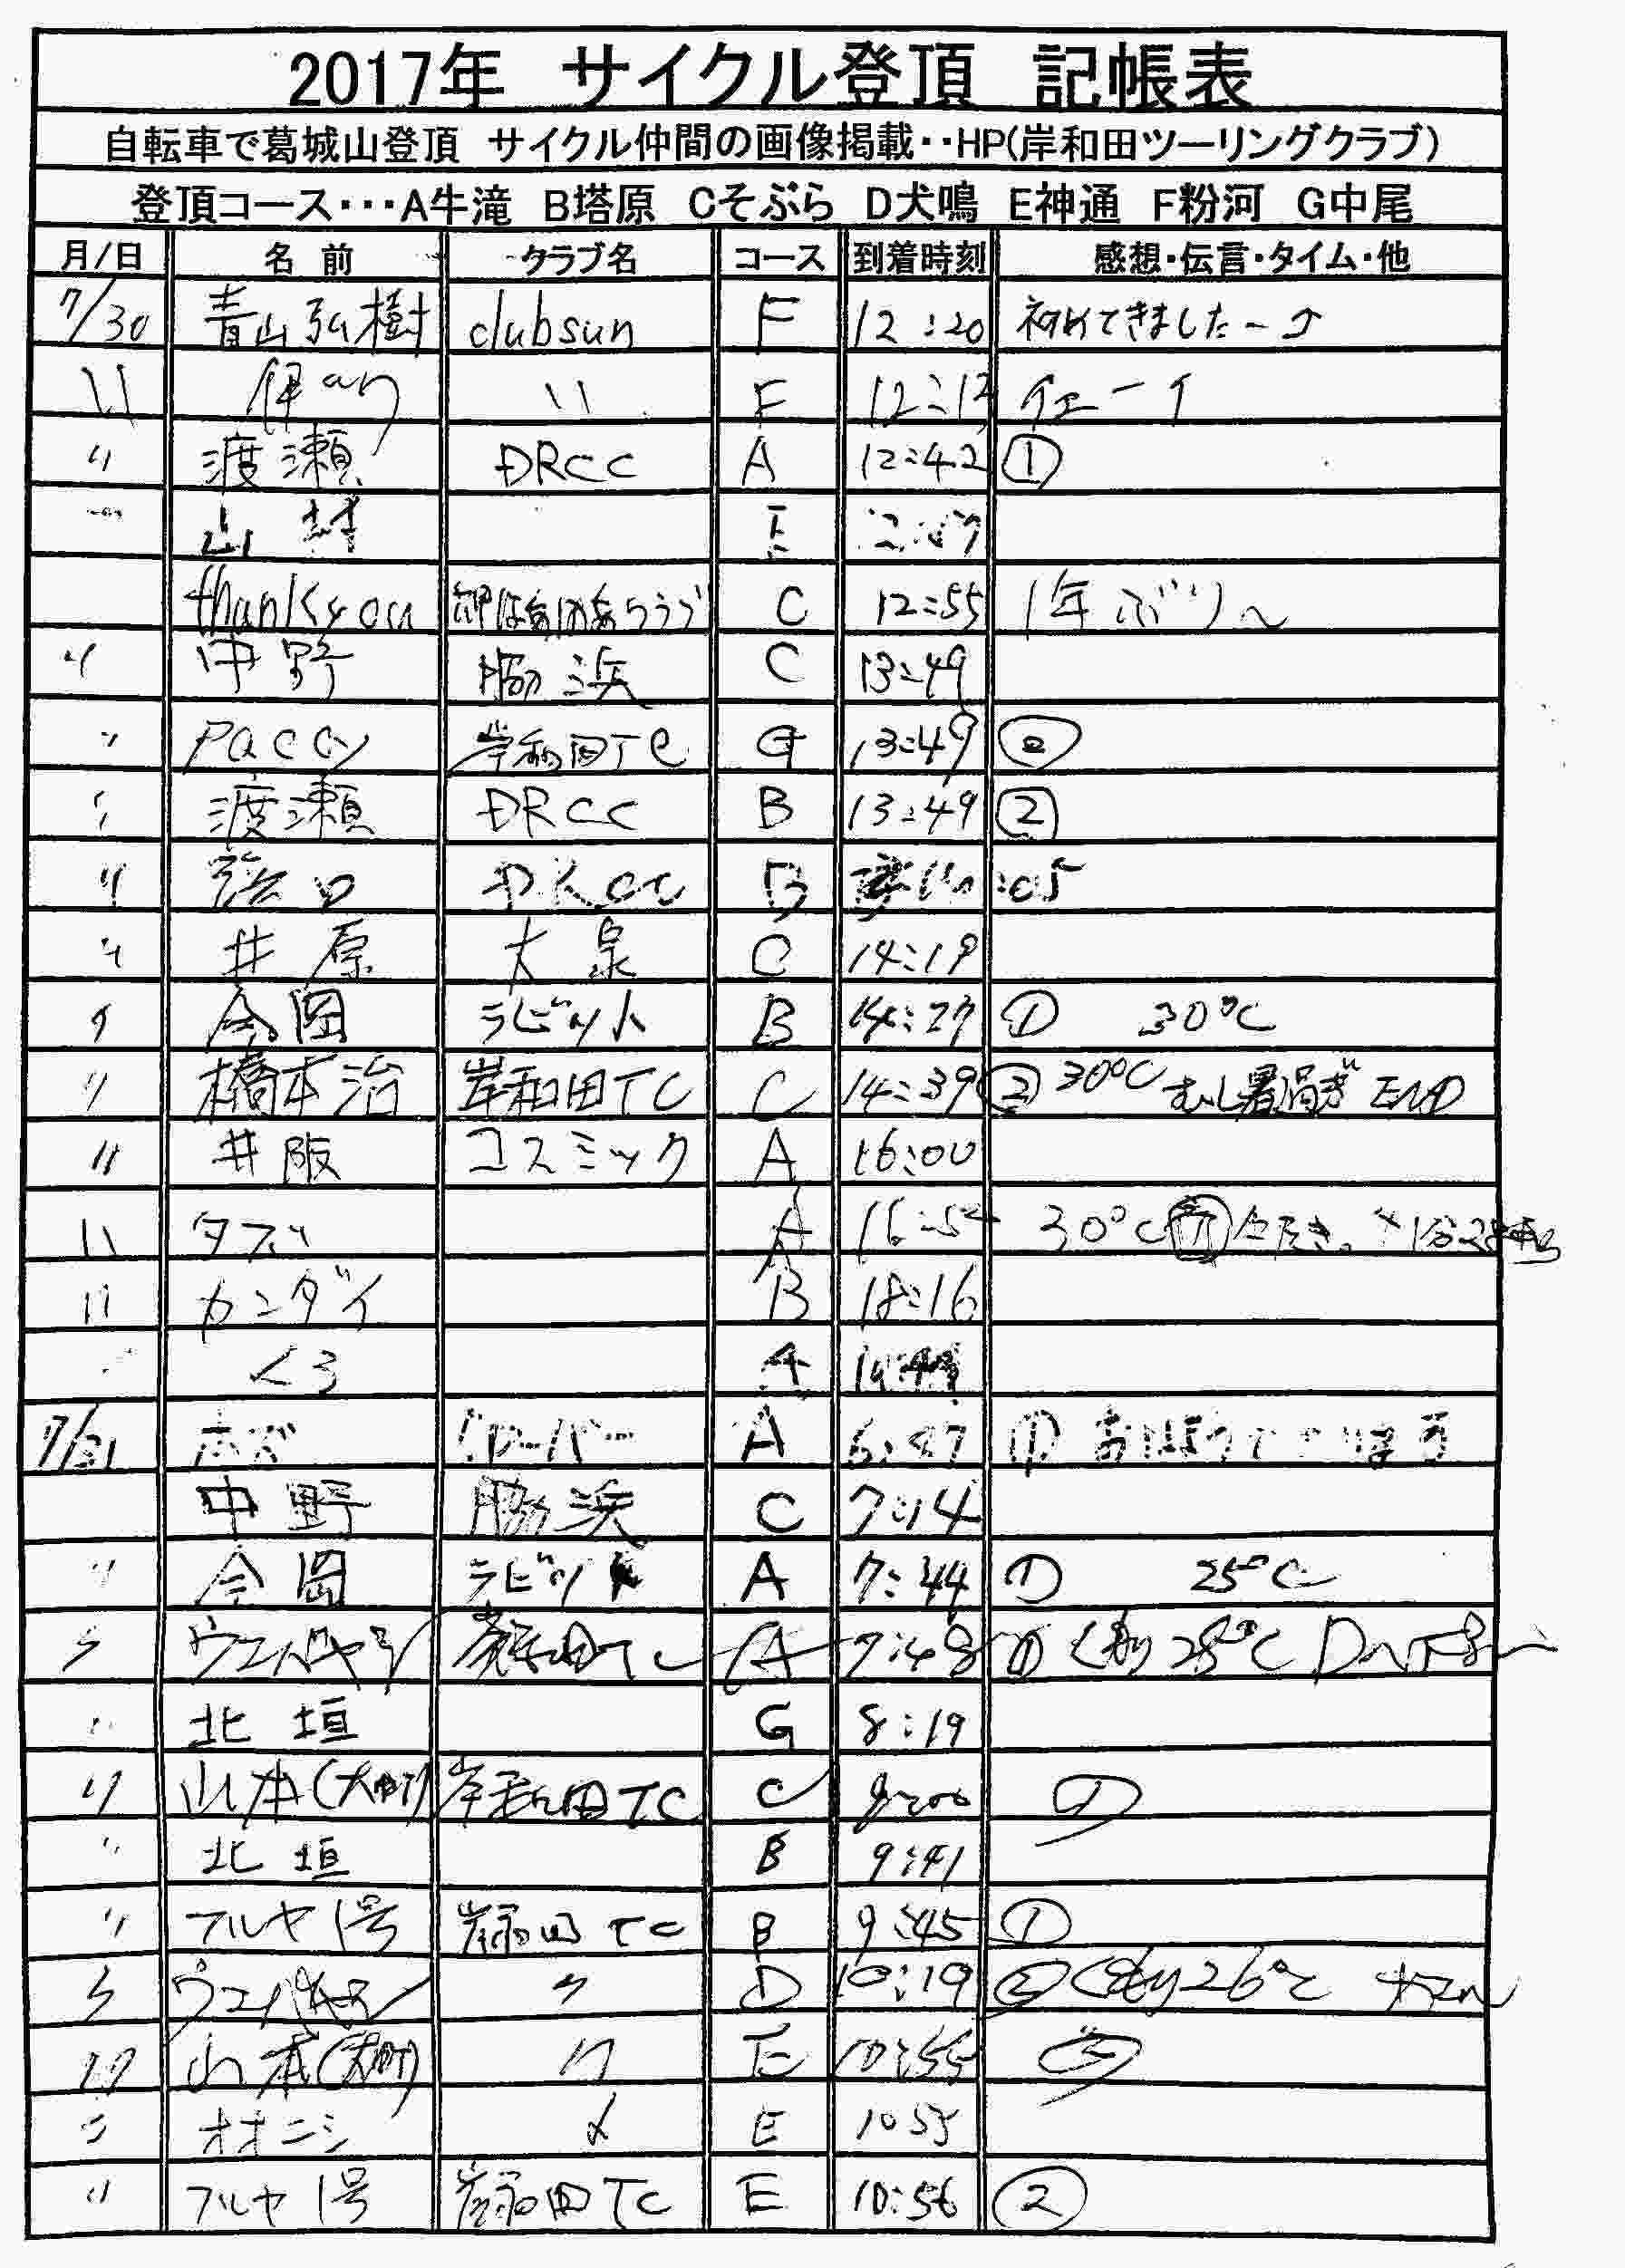 2017年 サイクル登頂 記帳表
自転車で葛城山登頂 サイクル仲間の画像掲載・・HP(岸和田ツーリングクラブ)
登頂コース・・・A牛滝 B塔原 Cそぶら D犬鳴 E神通 F粉河 G中尾
月/日 名前 クラブ名 コース 到着時刻 感想・伝言・タイム・他
7/30 青山弘樹 clubsun F 12:20 初めてきました〜
〃 〃 F 12:13 イエーイ
〃 渡瀬 DRCC A 12:42 ①
山村 E
thankyou C 12:55 1年ぶり〜
〃 中野 脇浜 C 13:49
〃 Paccy 岸和田TC G 13:49 ②
〃 渡瀬 DRCC B 13:49 ②
〃 B :05
〃 井原 大泉 C 14:19
〃 今岡 ラビット B 14:27 ① 30℃
〃 橋本治 岸和田TC C 14:39 ② 30℃ むし暑過ぎ END
〃 井阪 コスミック A 16:00
〃 タブツ A 16:54 30℃
〃 カンダイ B 18:16
くろ A
7/31 A 6:47 ①
中野 脇浜 C 7:14
〃 今岡 ラビット A 7:44 ① 25℃
〃 ウエパヤシ 岸和田TC A 7:48 ① くもり 25℃
〃 北垣 G 8:19
〃 山本(大町) 岸和田TC C 9:00 ①
〃 北垣 B 9:41
〃 フルヤ1号 岸和田TC B 9:45 ①
〃 〃 D 10:19 ② くもり 26℃
〃 山本(大町) 〃 E 10:55 ②
〃 オオニシ 〃 E 10 55
〃 フルヤ1号 岸和田TC E 10:56 ②